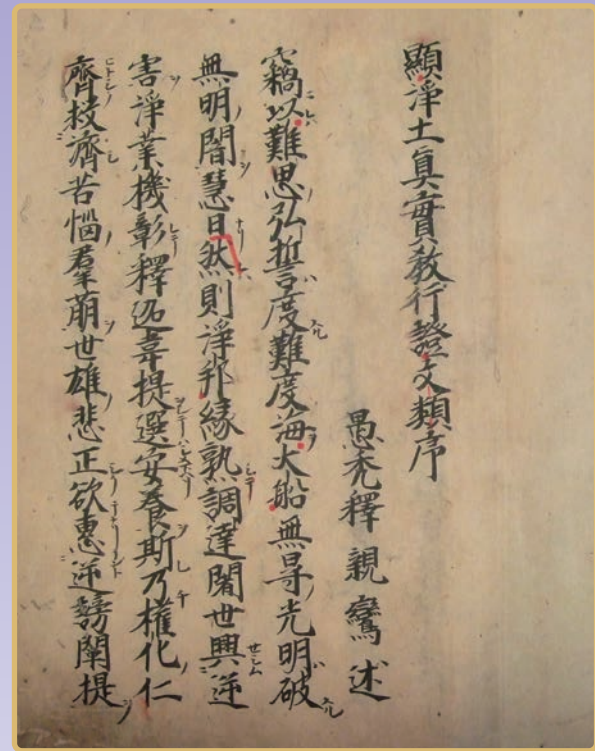 顯淨土眞實教行證文類序
愚禿釋親鸞述
竊以難思弘誓度難度海大船無㝵光明破
無明闇慧日然則淨邦縁熟調達闍世興逆
害淨業機彰釋迦韋提選安養斯乃權化仁
齊救濟苦惱羣萠世雄悲正欲惠逆謗闡提